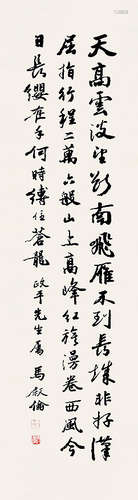 天高雲淡望斷南飛雁不到長城非好漢
屈指行程二萬六般山上高峰紅旗漫卷西風今
日長纓在手何時縛住蒼龍 政平先生屬 馬叙倫